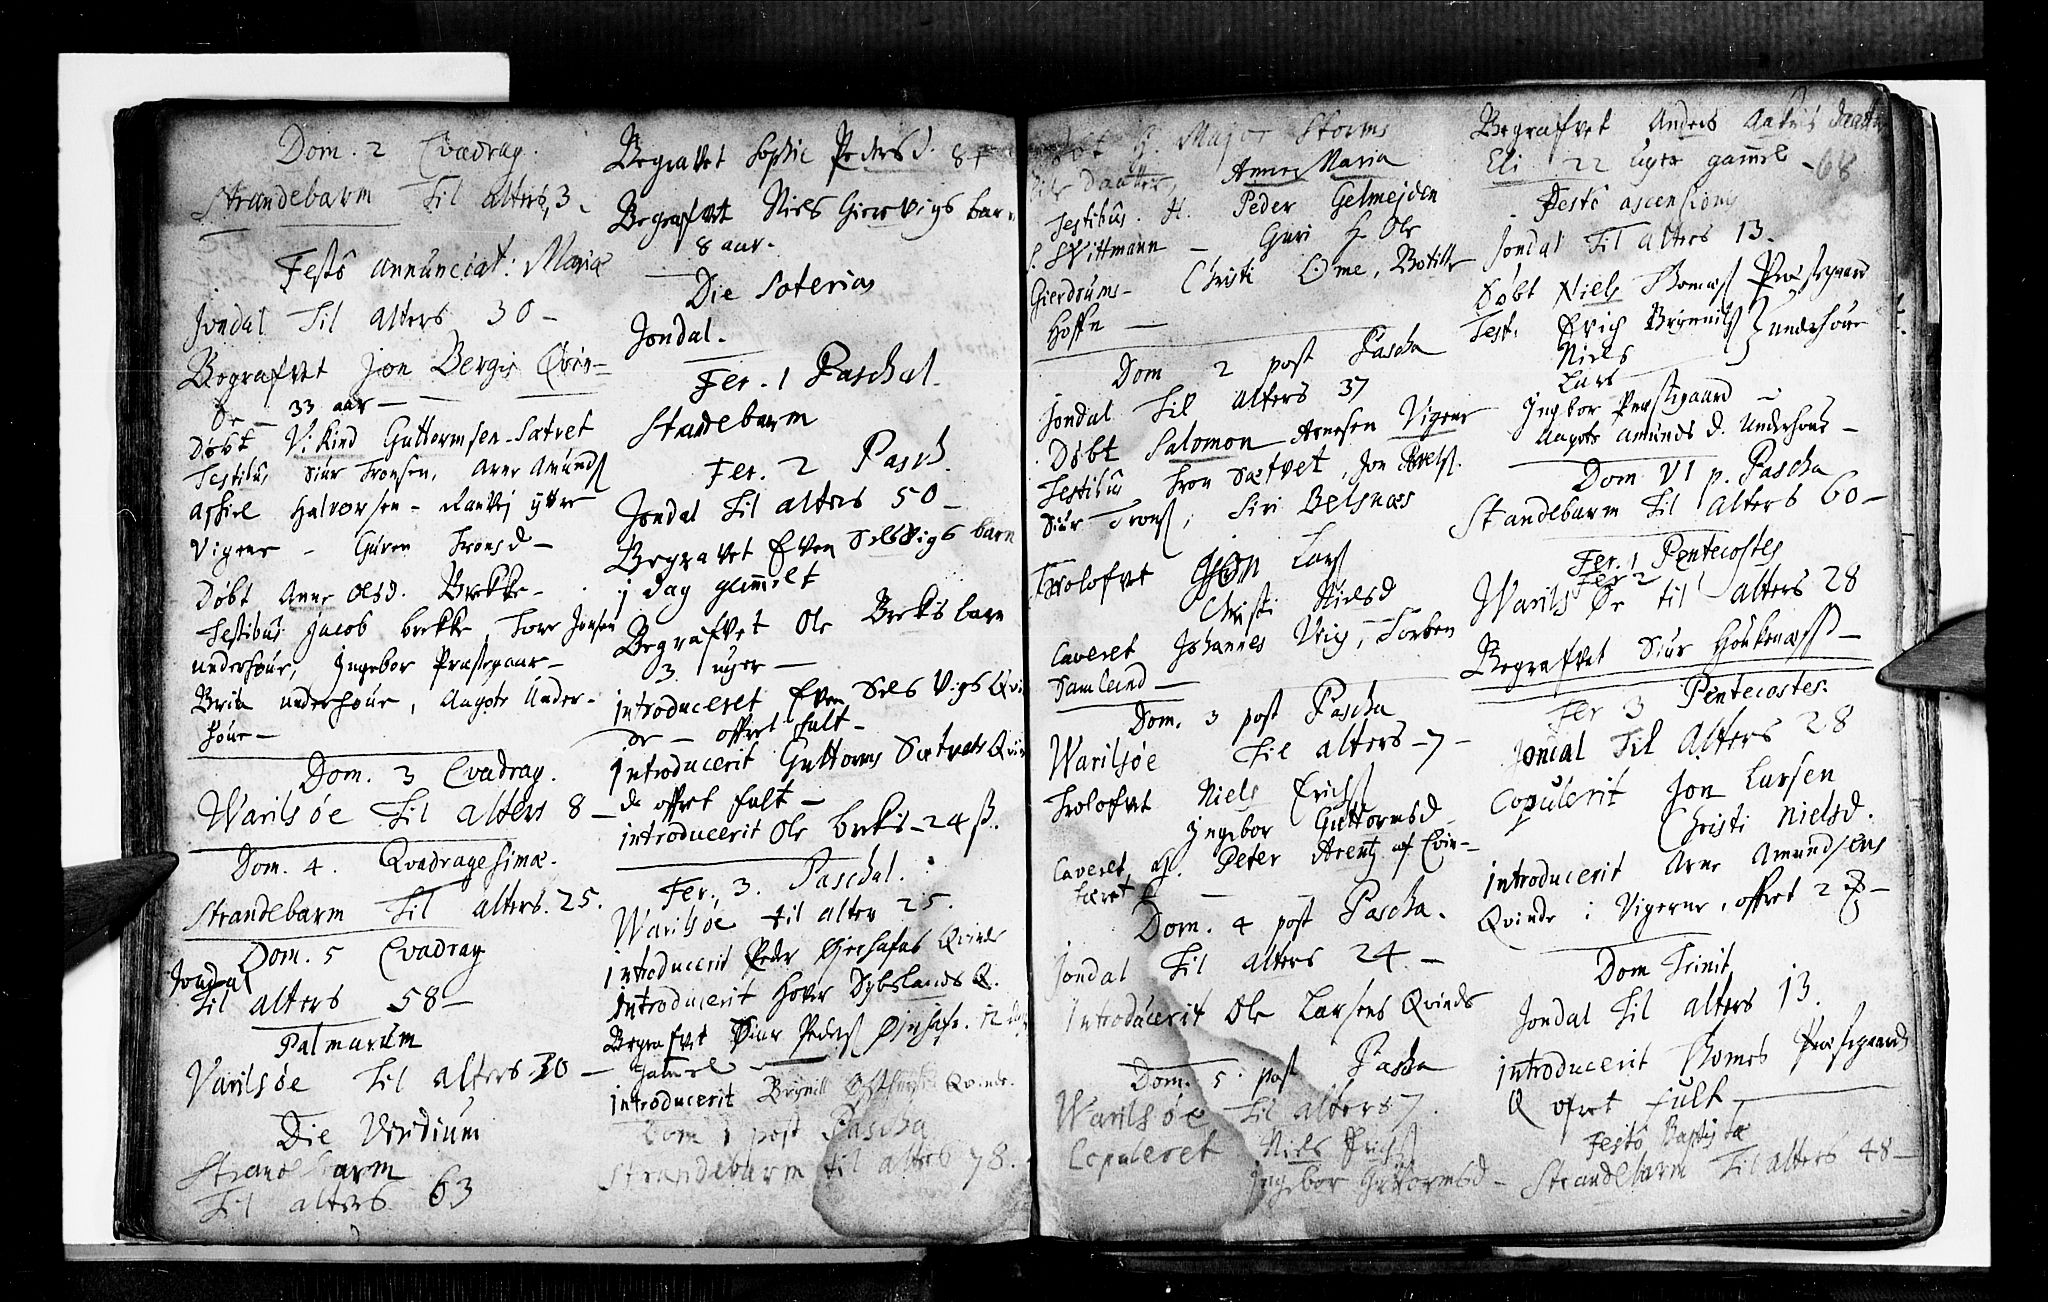 Dom. 2 Qvadrag.
Strandebarm til alters, 3
Festo Annunciat: Mariæ
Jondal til alters 30 –
Begrafvet Jon Bergis Qvin–
de – 33 aar –
Døbt Vikind Guttormsen Sætvet
Testibus Siur Tronsen, Arne Amunds
Aschiel Halvorsen – Ranvej ytre
Vigene – Guren Tronsd –
Døbt Anne Olsd. Brekke –
Testibus Jacob brekke, Tore Jonsen
underhoue, Ingebor Præstegaar –
Brita underhoue, Aagote Under–
houe –
Dom. 3 Qvadrag.
Warilsøe til alters 8 –
Dom. 4. Qvadragesimæ.
Strandebarm til alters. 25.
Dom. 5 Qvadrag
Jondal
til alters 58 –
Palmarum
Varilsøe til alters 30 –
Die Viridium
Strandebarm
til alters 63
Begravet Sophie Pedersd. 8
Begrafvet Niels Giervigs barn
8 aar –
Die Soterias
Jondal.
Fer. 1 Paschal.
Standebarm
Fer. 2 Pasch.
Jondal til alters 50 –
Begravet Even Selsvigs barn
j dag gammelt
Begrafvet Ole Brekis barn
3 uger –
introduceret Even Selsvigs Qvin
de – offret fult –
introducerit Guttorms Sætvets Qvin
de offret fult –
introducerit Ole brekis – 24 ß.
Fer. 3. Paschal.
Warilsøe til alter 25.
introducerit Peder Qvinde
introducerit Hover Sybelands Q.
Begrafvet Siur Peders 12
gammel –
introducerit Brynild Qvinde.
Dom 1 post Pascha
Strandebarm til alters 78.
Døbt H. Major Storms
Daatter, Anne Maria
Testibus. H. Peder Gelmejden
S. Wittmann – Guri H. Ole
Gierdrums – Christi Ome, Botille
Hoffn –
Dom 2 post Pascha
Jondal til alters 37
Døbt Salomon Arnesen Vigene
Testibus Tron Sætvet, Jon
Siur Trons, Siri Belsnæs
Trolofvet Jon Lars
Christi Nielsd
Caveret Johannes Vig, Torben
Samland –
Dom. 3 post Pascha
Warilsøe til alters – 7 –
Trolofvet Niels Erichs
Ingebor Guttormsd
Caveret H. Peter Arentz af Qvin–
heret
Dom. 4 post Pascha.
Jondal til alters 24. –
Introducerit Ole Larsens Qvinde
Dom. 5. post Pascha
Warilsøe til alters 7.
Copuleret Niels Erichs
Ingebor Guttormsd –
Begraffvet Anders Aakres daatter
Eli 22 uger gammel – 68
Festo ascensionis
Jondal til alters 13.
Døbt Niels Thomæs Præstegaard
Test. Erich Brynnils } underhoue
Niels
Lars
Ingbor Præstegaard –
Aagote Amunds d. Underhoue –
Dom VI p. Pascha
Standebarm til alters 60 –
Fer. 1 Pentecostes
Fer 2
Warils Øe til alters 28
Begrafvet Siur –
Fer 3 Pentecostes.
Jondal til alters 28
Copulerit Jon Larsen
Christi Nielsd.
introducerit Arne Amundsens
Qvinde i Vigerne, offret 2 ß –
Dom Trinit
Jondal til alters 13.
introducerit Thomes Præstegaards
Q ofret fult –
Festo Baptistæ
Strandebarm til alters 48 –